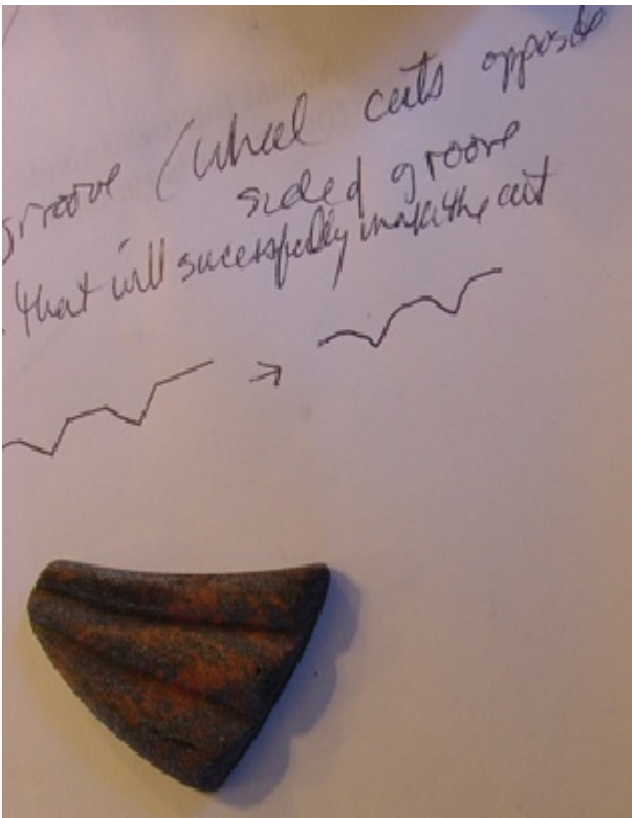 groove (wheel cuts opposite
sided groove
that will sucessfully make the cut